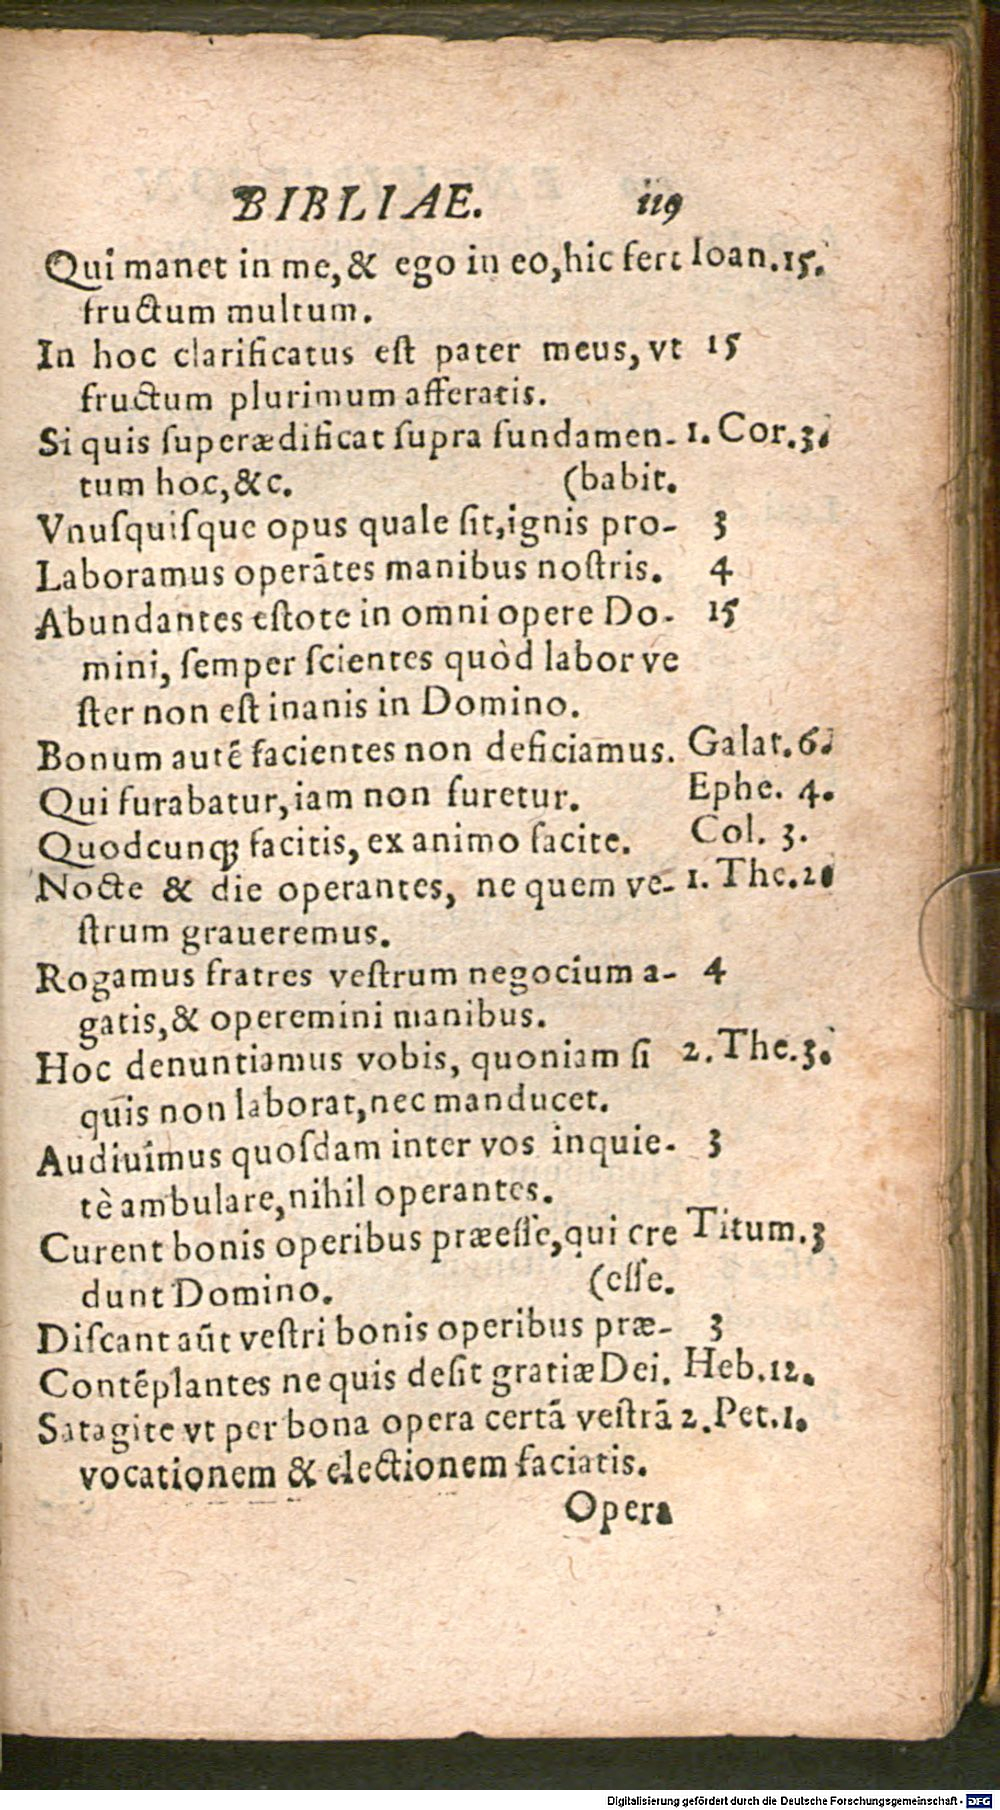 BIBLIAE. 119
Qui manet in me, & ego in eo, hic fert Ioan.15.
fructum multum.
In hoc clarificatus est pater meus, vt 15
fructum plurimum afferatis.
Si quis superædificat supra fundamen- 1. Cor.3.
tum hoc, &c. (babit.
Vnuſquiſque opus quale ſit, ignis pro- 3
Laboramus operãtes manibus noſtris. 4
Abundantes eſtote in omni opere Do- 15
mini, ſemper ſcientes quòd labor ve
ſter non eſt inanis in Domino.
Bonum autẽ facientes non deficiamus. Galat.6.
Qui furabatur, iam non furetur. Ephe. 4.
Quodcunq; facitis, ex animo facite. Col. 3.
Nocte & die operantes, ne quem ve- 1. The.2.
ſtrum graueremus.
Rogamus fratres veſtrum negocium a- 4
gatis, & operemini manibus.
Hoc denuntiamus vobis, quoniam ſi 2. The.3.
quis non laborat, nec manducet.
Audiuimus quoſdam inter vos inquie- 3
tè ambulare, nihil operantes.
Curent bonis operibus præeſſe, qui cre Titum.3
dunt Domino. (eſſe.
Diſcant aũt veſtri bonis operibus præ- 3
Contẽplantes ne quis deſit gratiæ Dei. Heb.12.
Satagite vt per bona opera certã veſtrã 2. Pet.1.
vocationem & electionem faciatis.
Opera
Digitalisierung gefördert durch die Deutsche Forschungsgemeinschaft - DFG